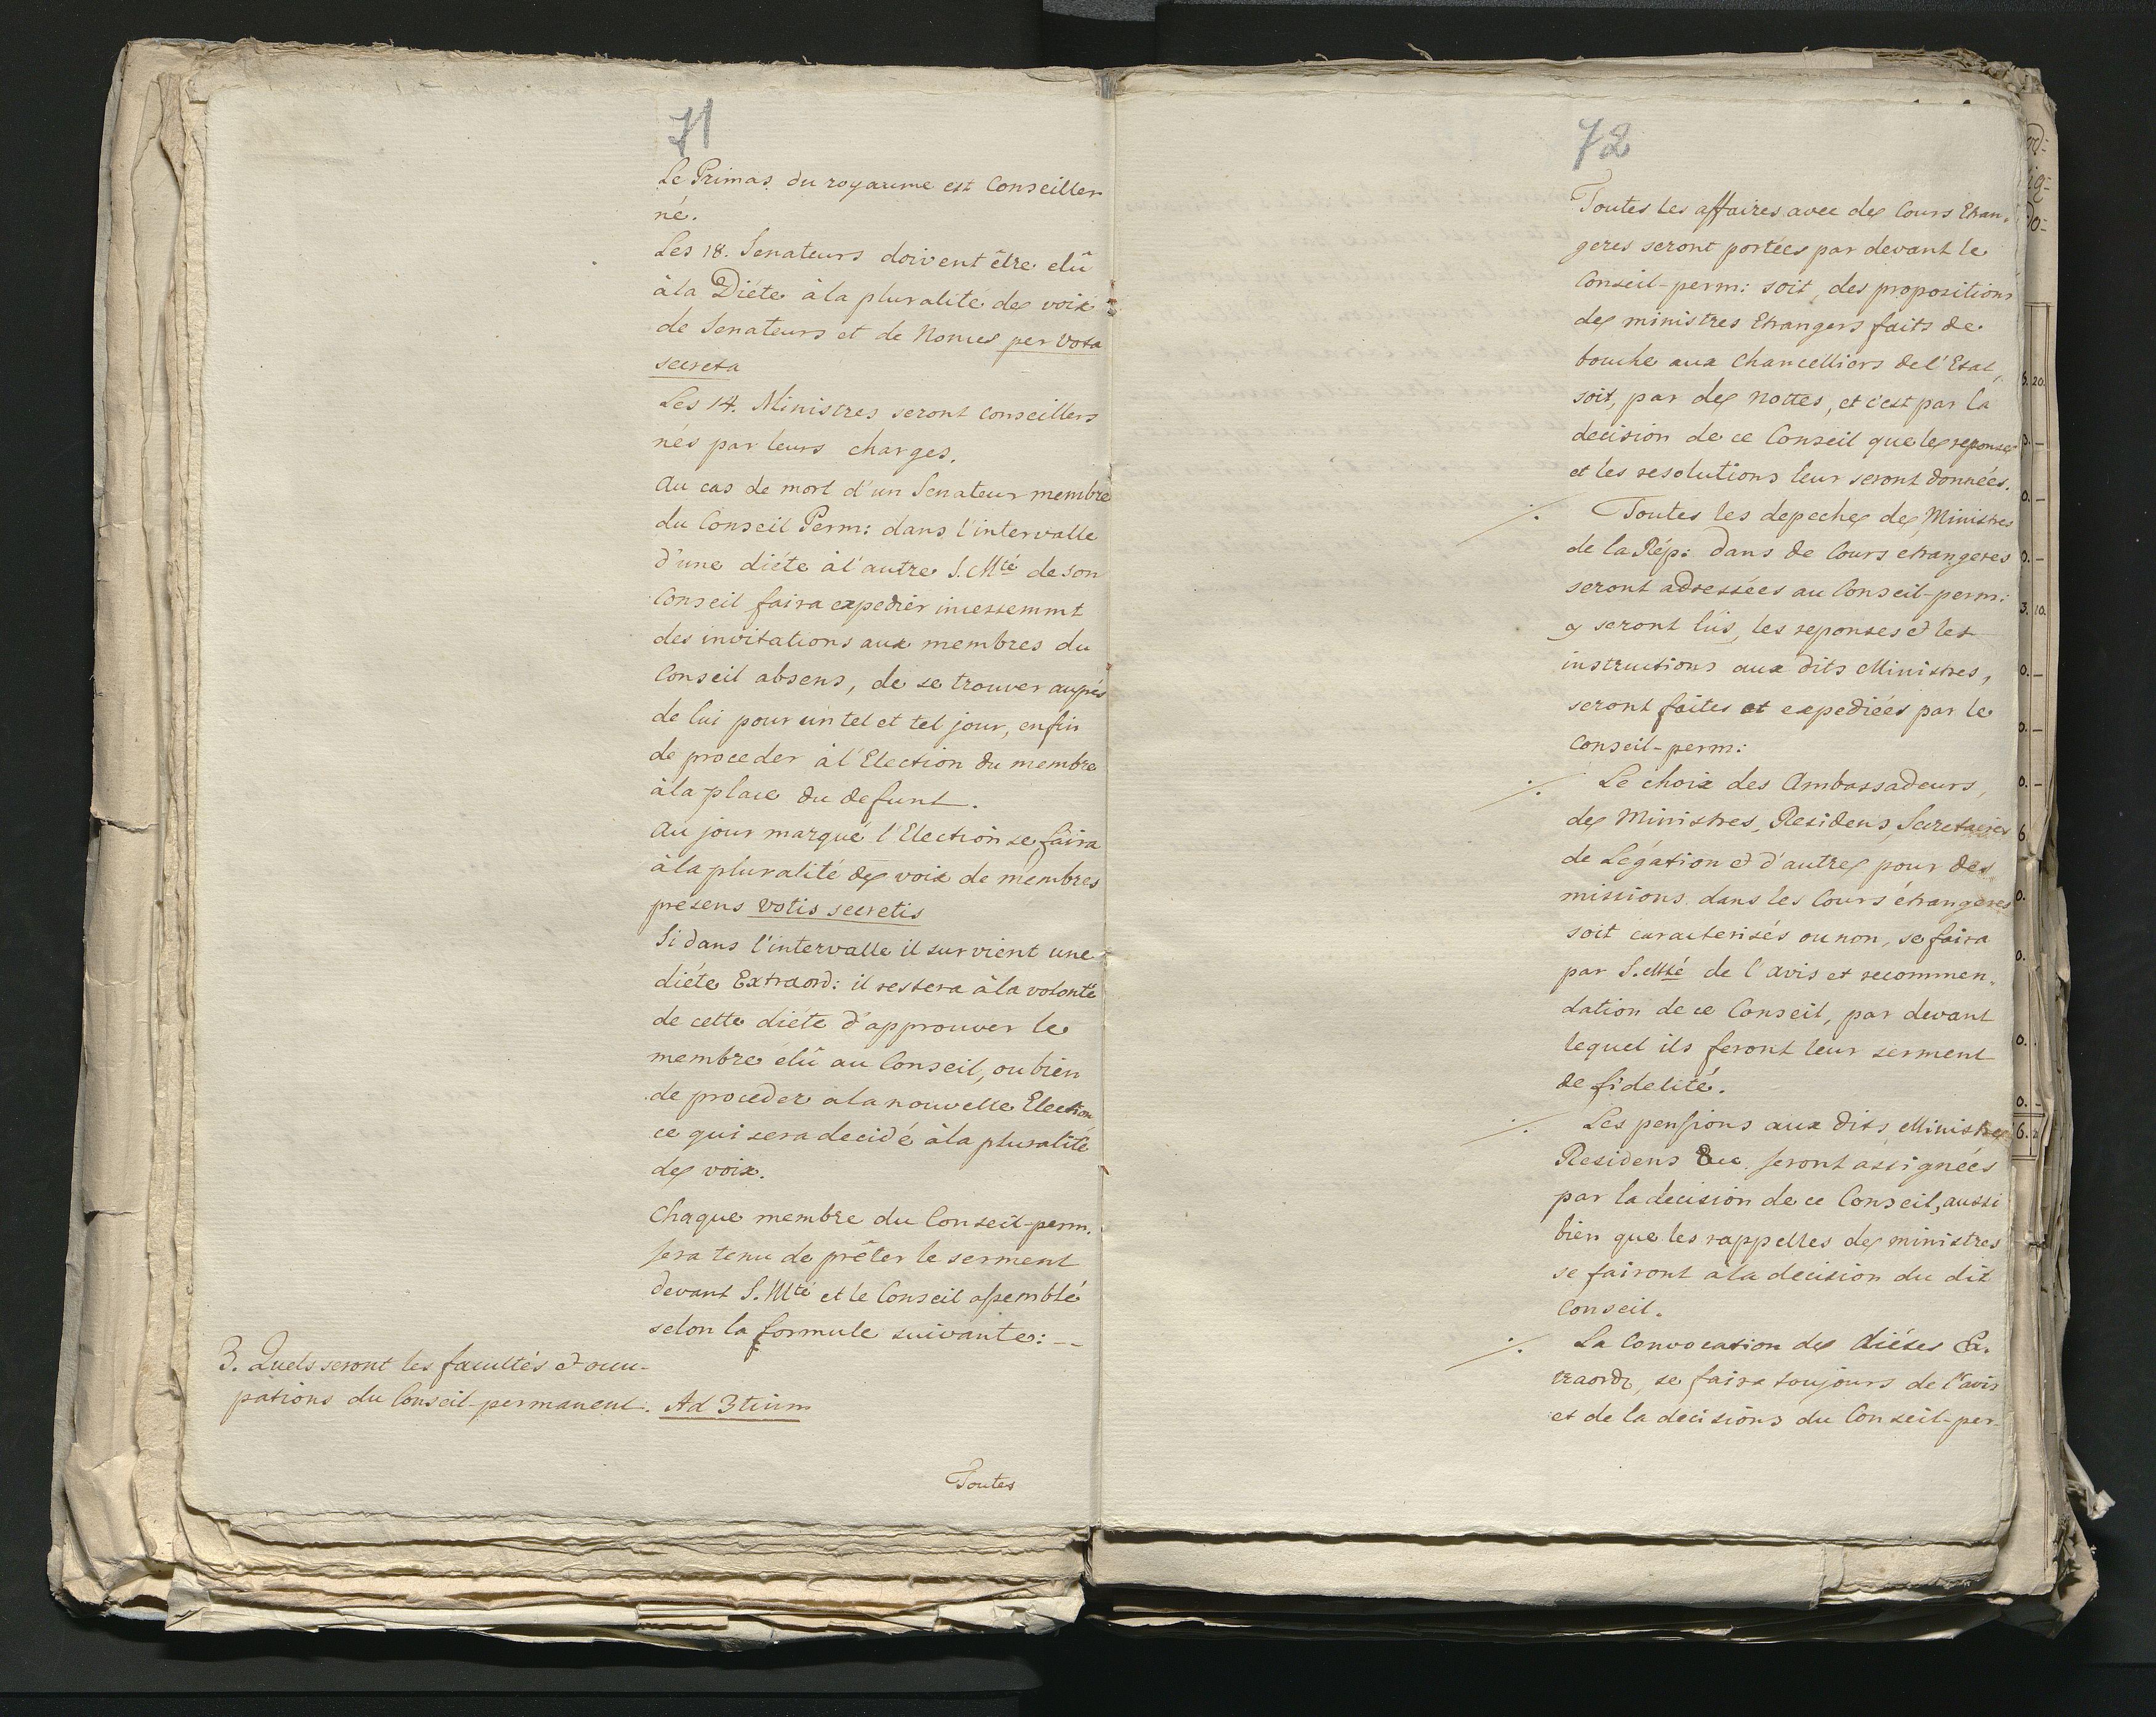 71
Le Primas du royaume est Conseiller
né.
Les 18. Senateurs doivent être elû
à la Diéte à la pluralité des voix
de Senateurs et de Nonces per vota
secreta
Les 14. Ministres seront conseillers
nés par leurs charges.
Au cas de mort d'un Senateur membre
du Conseil Perm: dans l'intervalle
d'une diéte à l'autre S. Mté de son
Conseil faira expedier incessemmt
des invitations aux membres du
Conseil absens, de se trouver auprés
de lui pour un tel et tel jour, enfin
de proceder à l'Election du membre
à la place du defunt.
Au jour marqué l'Election se faira
à la pluralité des voix de membres
presens votis secretis
Si dans l'intervalle il survient une
diéte Extraord: il restera à la volonté
de cette diéte d'approuver le
membre élû au Conseil, ou bien
de proceder a la nouvelle Election
ce qui sera decidé à la pluralité
des voix.
Chaque membre du Conseil-perm.
sera tenu de prêter le serment
devant S. Mté et le Conseil assemblé
selon la formule suivante: --
3. Quels seront les facultés et occu-
pations du Conseil-permanent. Ad 3tium
Toutes
72
Toutes les affaires avec des Cours Etran-
geres seront portées par devant le
Conseil-perm: soit, des propositions
des ministres Etrangers faits de
bouche aux Chancelliers de l'Etat,
soit, par des nottes, et c'est par la
decision de ce Conseil que les reponses
et les resolutions leur seront données.
./. Toutes les depeches des Ministres
de la Rép: dans de Cours etrangeres
seront adressées au Conseil-perm:
y seront lus, les reponses et les
instructions aux dits Ministres,
seront faites et expediées par le
Conseil-perm:
./. Le choix des Ambassadeurs,
des Ministres, Residens, Secretaires
de Légation et d'autres pour des
missions dans les Cours étrangeres
soit caracterisés ou non, se faira
par S. Mté de l'avis et recommen-
dation de ce Conseil, par devant
lequel ils feront leur serment
de fidelité.
./. Les pensions aux dits Ministres
Residens &c. seront assignées
par la decision de ce Conseil, aussi
bien que les rappelles des ministres
se fairont a la decision du dit
Conseil.
./. La Convocation des diétes Ex-
traord, se faira toujours de l'avis
et de la decisions du Conseil-per-